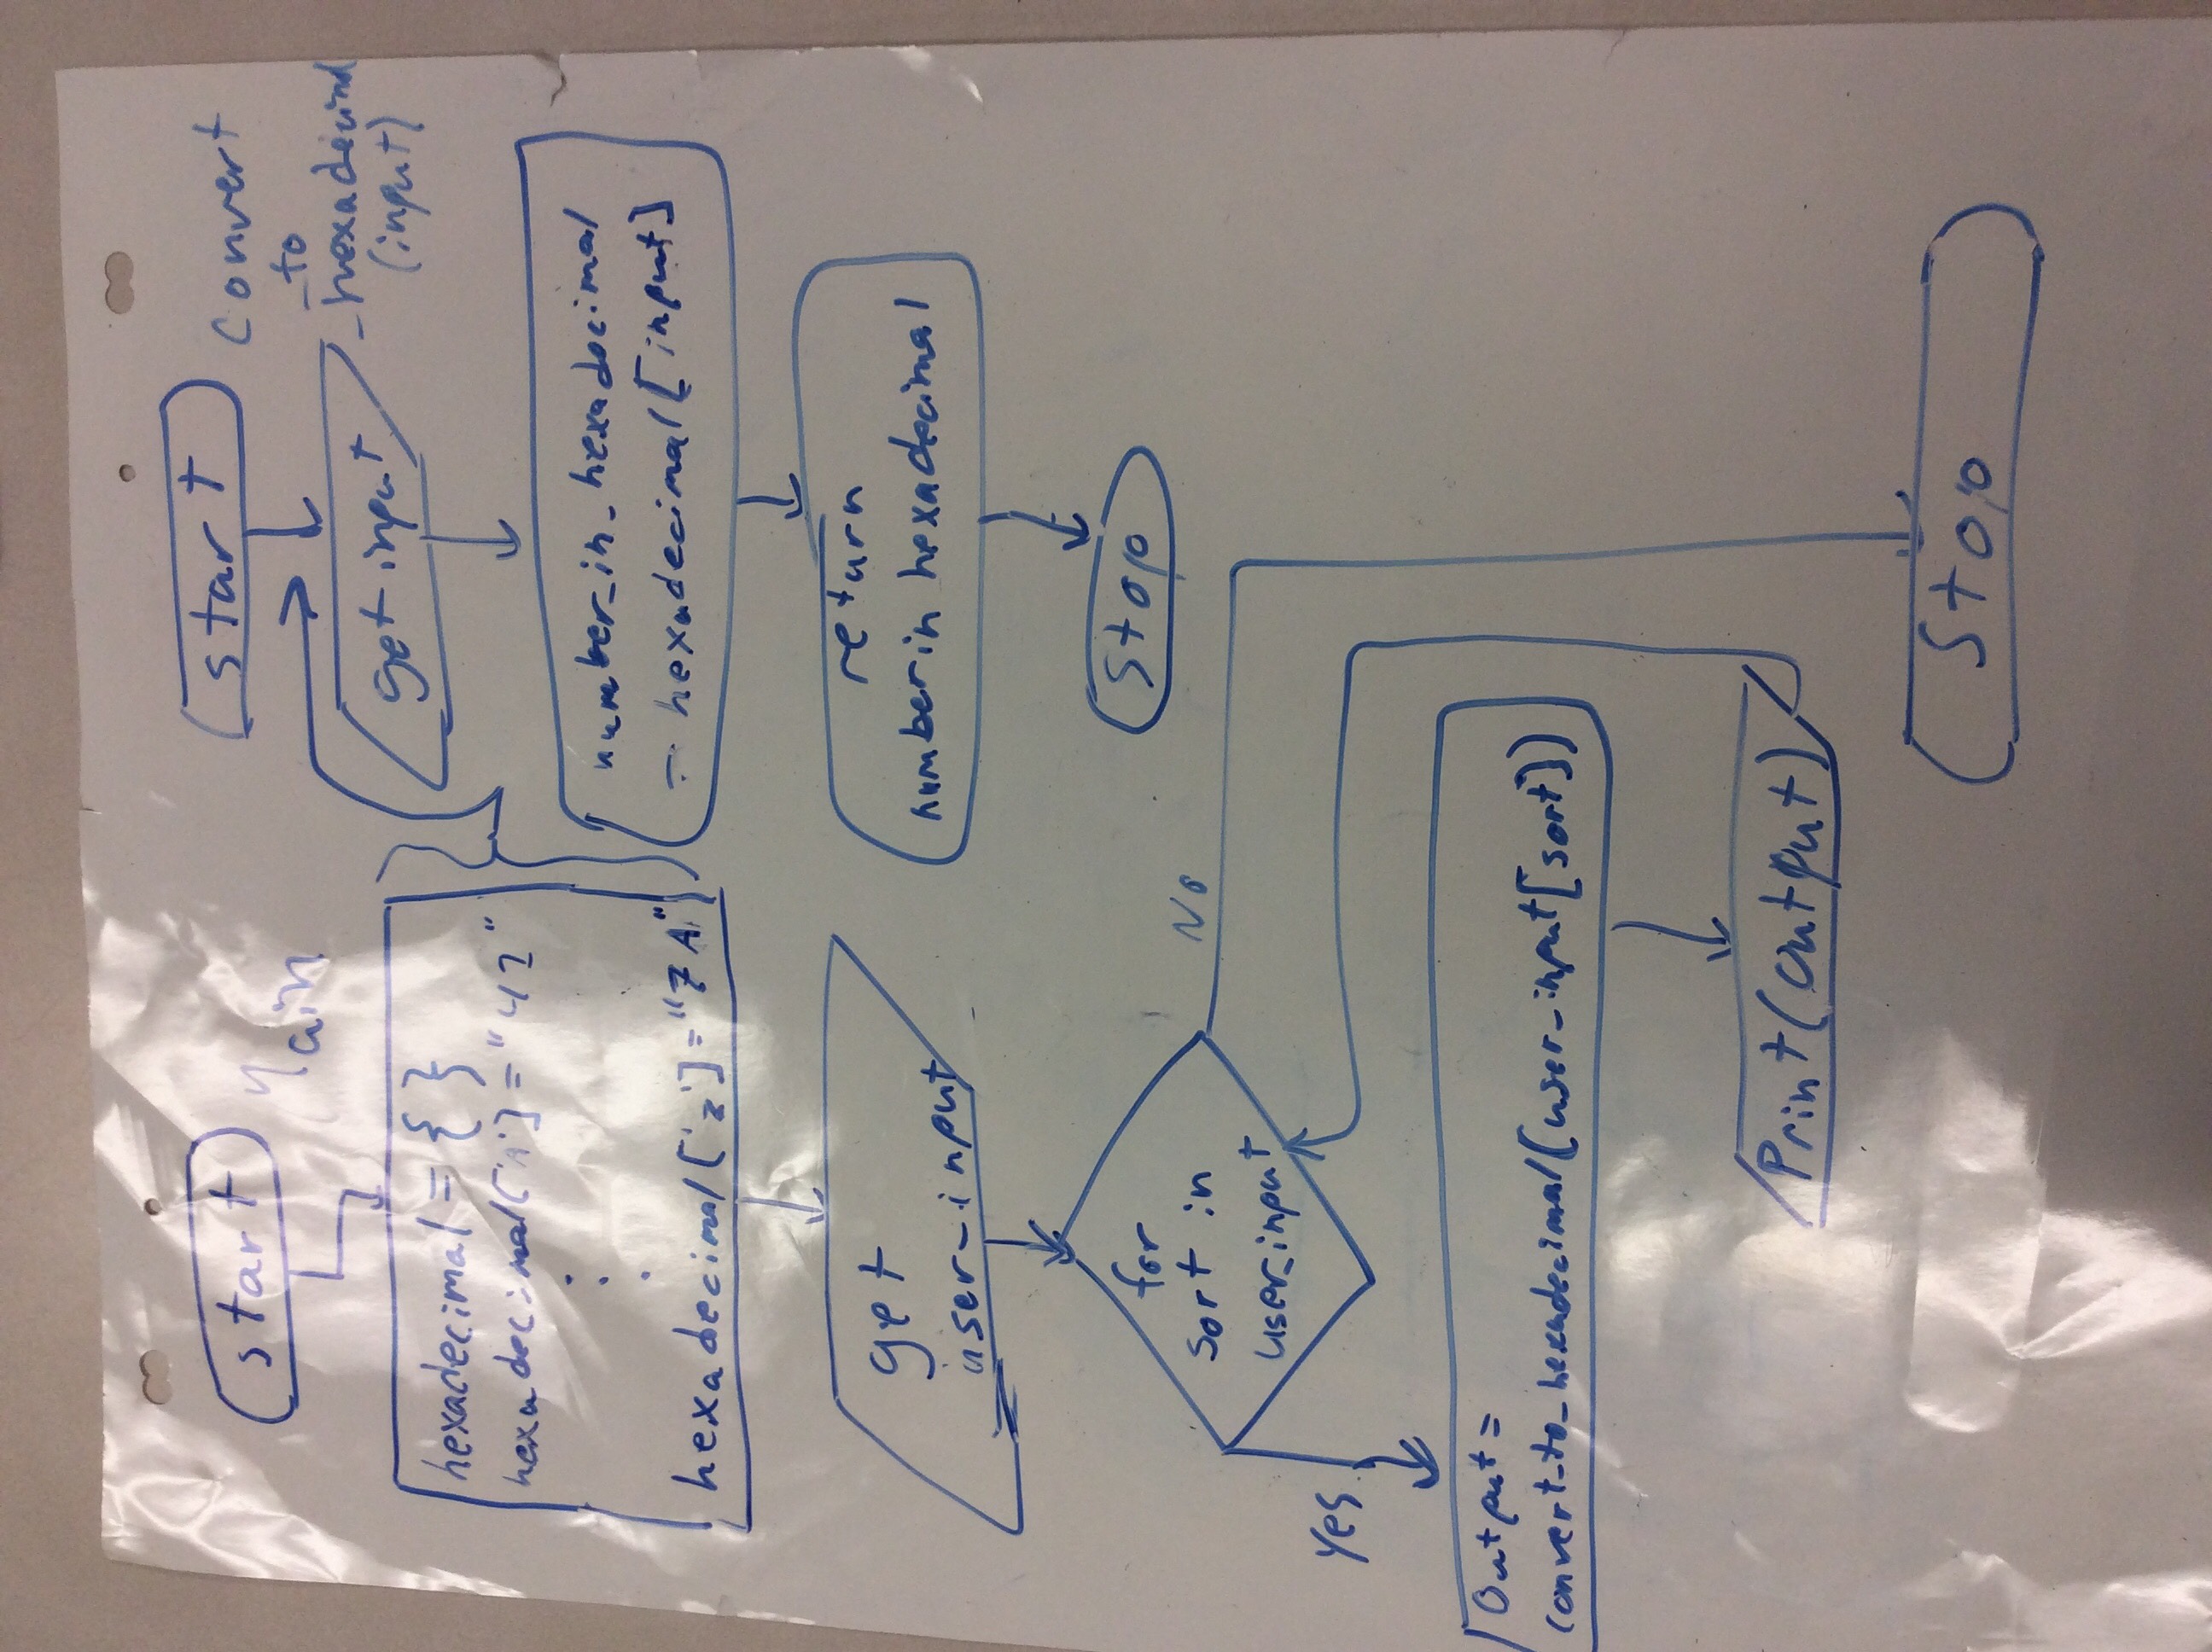 start
Main
hexadecimal = { }
hexadecimal['A'] = "42"
.
.
.
hexadecimal['z'] = "7A"
get
user_input
for
sort in
user_input
Yes
No
Output =
convert_to_hexadecimal(user_input[sort])
Print(output)
Stop
start
convert
_to
_hexadecimal
(input)
get input
number_in_hexadecimal
= hexadecimal[input]
return
number in hexadecimal
Stop